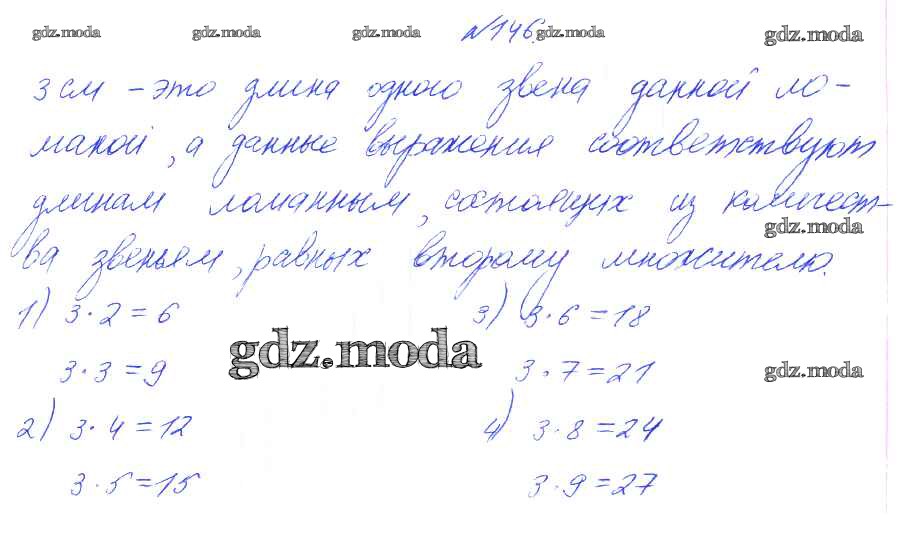 gdz.moda gdz.moda gdz.moda №146. gdz.moda gdz.moda
3 см – это длина одного звена данной ло-
маной, а данные выражения соответствуют
длинам ломанным, состоящих из количест-
gdz.moda
ва звеньям, равных второму множителю.
1) 3·2=6 3) 3·6=18
gdz.moda
3·3=9 3·7=21 gdz.moda
2) 3·4=12 4) 3·8=24
3·5=15 3·9=27